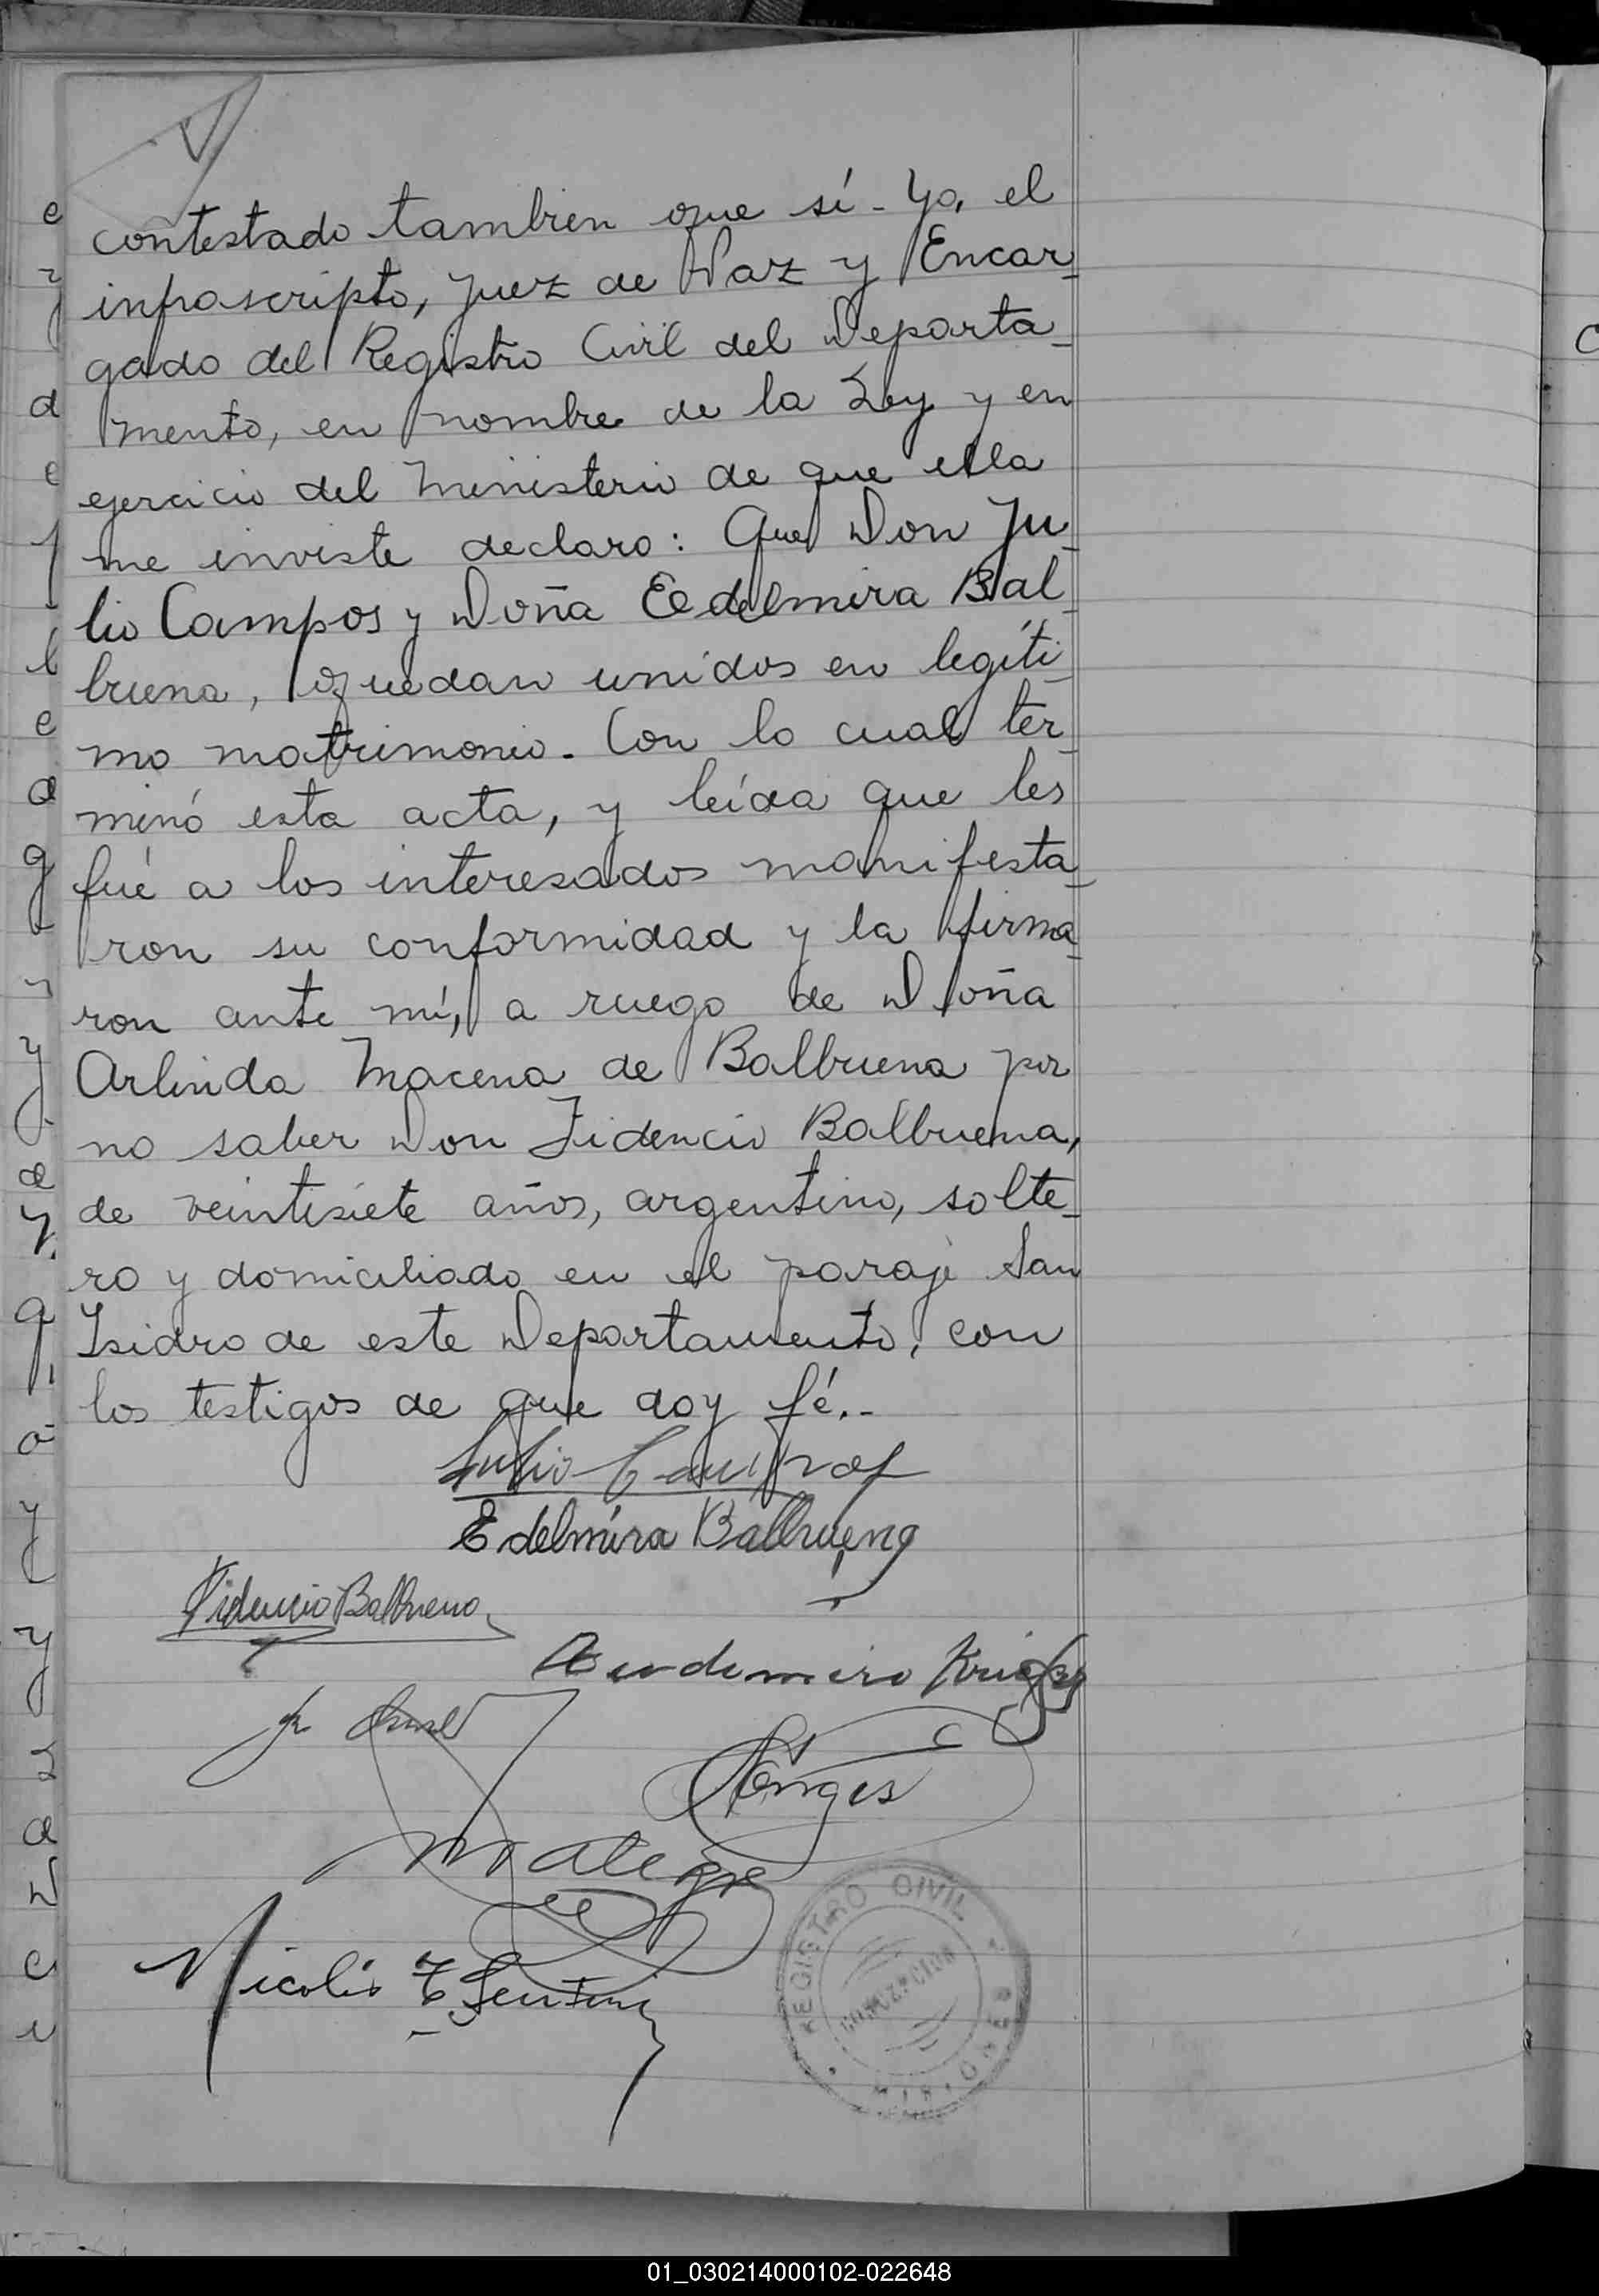 contestado tambien que sí - Yo, el
infrascripto, Juez de Paz y Encar-
gado del Registro Civil del Departa-
mento, en nombre de la Ley y en
ejercicio del Ministerio de que ella
me inviste declaro: Que Don Ju-
lio Campos y Doña Edelmira Bal-
buena, quedan unidos en legíti-
mo matrimonio. Con lo cual ter-
minó esta acta, y leída que les
fué a los interesados manifesta-
ron su conformidad y la firma-
ron ante mí, a ruego de Doña
Arlinda Macena de Balbuena por
no saber Don Fidencio Balbuena,
de veintisiete años, argentino, solte-
ro y domiciliado en el paraje San
Isidro de este Departamento, con
los testigos de que doy fé.-
Julio Campos
Edelmira Balbuena
Fidencio Balbuena
Nicolás
REGISTRO CIVIL
MISIONES
01_030214000102-022648